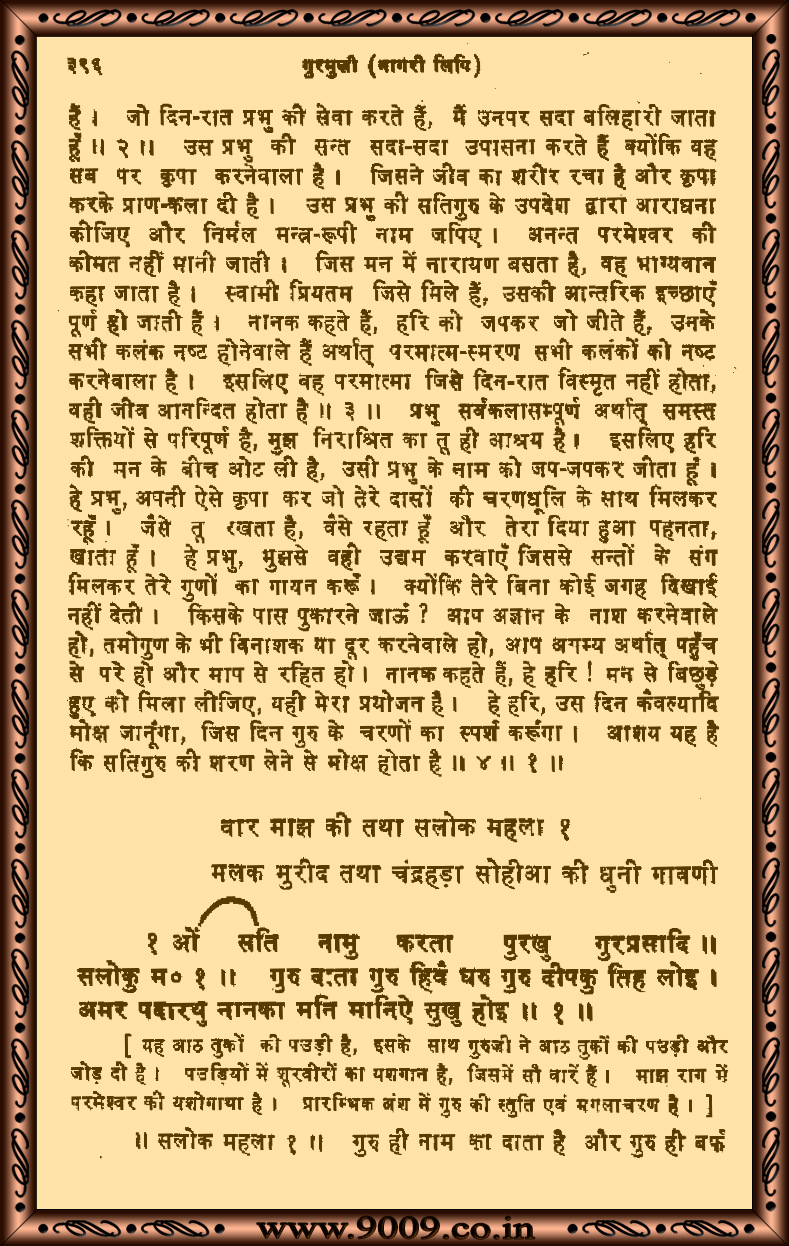 ३९६ गुरमुखी (नागरी लिपि)
हैं। जो दिन-रात प्रभु की सेवा करते हैं, मैं उनपर सदा बलिहारी जाता
हूँ ॥ २ ॥ उस प्रभु की सन्त सदा-सदा उपासना करते हैं क्योंकि वह
सब पर कृपा करनेवाला है। जिसने जीव का शरीर रचा है और कृपा
करके प्राण-कला दी है। उस प्रभु की सतिगुरु के उपदेश द्वारा आराधना
कीजिए और निर्मल मन्त्र-रूपी नाम जपिए। अनन्त परमेश्वर की
कीमत नहीं मानी जाती। जिस मन में नारायण बसता है, वह भाग्यवान
कहा जाता है। स्वामी प्रियतम जिसे मिले हैं, उसकी आन्तरिक इच्छाएँ
पूर्ण हो जाती हैं। नानक कहते हैं, हरि को जपकर जो जीते हैं, उनके
सभी कलंक नष्ट होनेवाले हैं अर्थात् परमात्म-स्मरण सभी कलंकों को नष्ट
करनेवाला है। इसलिए वह परमात्मा जिसे दिन-रात विस्मृत नहीं होता,
वही जीव आनन्दित होता है ॥ ३ ॥ प्रभु सर्वकलासम्पूर्ण अर्थात् समस्त
शक्तियों से परिपूर्ण है, मुझ निराश्रित का तू ही आश्रय है। इसलिए हरि
की मन के बीच ओट ली है, उसी प्रभु के नाम को जप-जपकर जीता हूँ।
हे प्रभु, अपनी ऐसे कृपा कर जो तेरे दासों की चरणधूलि के साथ मिलकर
रहूँ। जैसे तू रखता है, वैसे रहता हूँ और तेरा दिया हुआ पहनता,
खाता हूँ। हे प्रभु, मुझसे वही उद्यम करवाएँ जिससे सन्तों के संग
मिलकर तेरे गुणों का गायन करूँ। क्योंकि तेरे बिना कोई जगह दिखाई
नहीं देती। किसके पास पुकारने जाऊं ? आप अज्ञान के नाश करनेवाले
हो, तमोगुण के भी विनाशक या दूर करनेवाले हो, आप अगम्य अर्थात् पहुँच
से परे हो और माप से रहित हो। नानक कहते हैं, हे हरि ! मन से बिछुड़े
हुए को मिला लीजिए, यही मेरा प्रयोजन है। हे हरि, उस दिन कैवल्यादि
मोक्ष जानूंगा, जिस दिन गुरु के चरणों का स्पर्श करूंगा। आशय यह है
कि सतिगुरु की शरण लेने से मोक्ष होता है ॥ ४ ॥ १ ॥
वार माझ की तथा सलोक महला १
मलक मुरीद तथा चंद्रहड़ा सोहीआ की धुनी गावणी
१ ओं सति नामु करता पुरखु गुरप्रसादि ॥
सलोकु म० १ ॥ गुरु दाता गुरु हिवै घरु गुरु दीपकु तिह लोइ।
अमर पदारथु नानका मनि मानिऐ सुखु होइ ॥ १ ॥
[ यह आठ तुकों की पउड़ी है, इसके साथ गुरुजी ने आठ तुकों की पउड़ी और
जोड़ दी है। पउड़ियों में शूरवीरों का यशगान है, जिसमें सौ वारें हैं। माझ राग में
परमेश्वर की यशोगाथा है। प्रारम्भिक अंश में गुरु की स्तुति एवं मंगलाचरण है। ]
॥ सलोक महला १ ॥ गुरु ही नाम का दाता है और गुरु ही बर्फ
www.9009.co.in